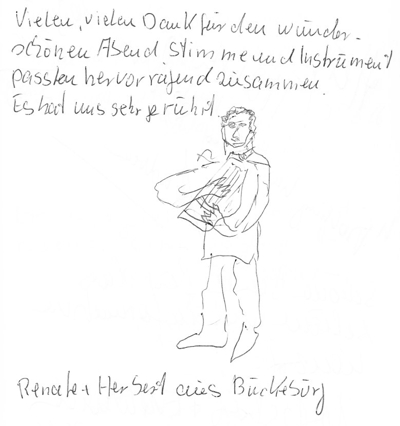 Vielen, vielen Dank für den wunder-
schönen Abend. Stimme und Instrument
passten hervorragend zusammen.
Es hat uns sehr gerührt.
Renate + Herbert aus Bückeburg